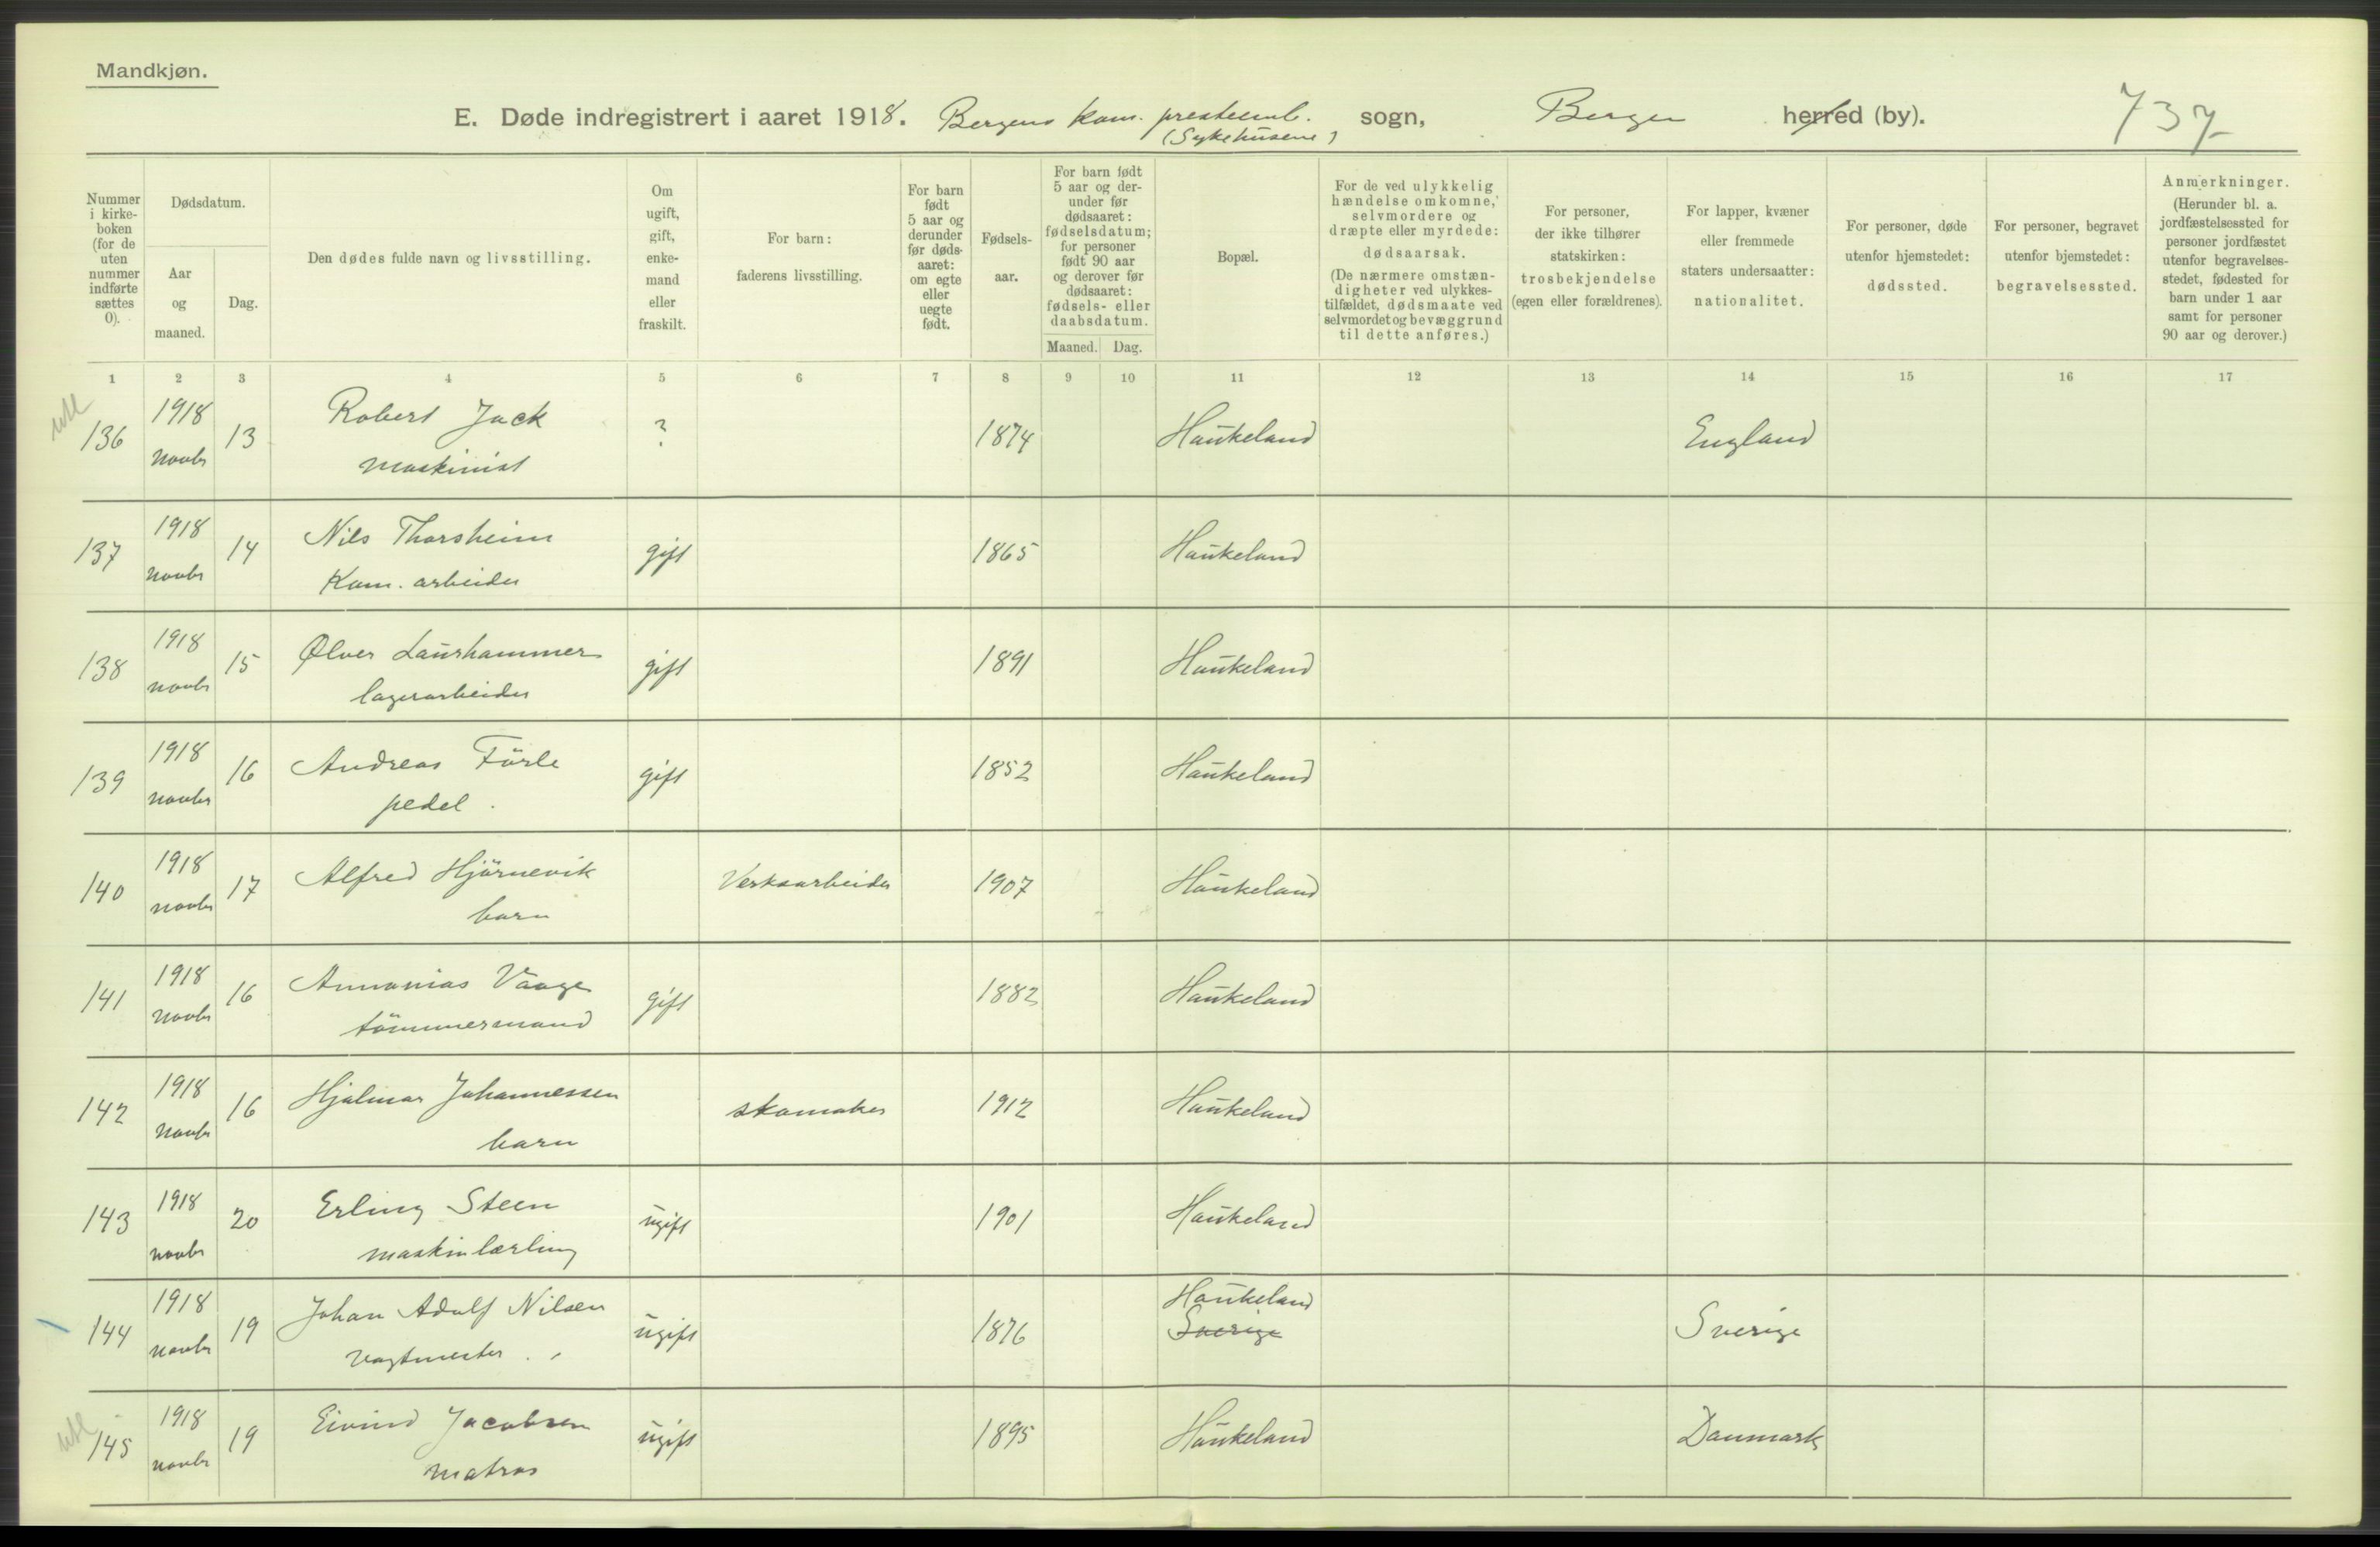 Mandkjøn.
E. Døde indregistrert i aaret 1918. Bergens kom. presteemb. (Sykehusene) sogn, Bergen herred (by). 737
Nummer i kirke-boken (for de uten nummer indførte sættes 0).
Dødsdatum.
Aar og maaned.
Dag.
Den dødes fulde navn og livsstilling.
Om ugift, gift, enke-mand eller fraskilt.
For barn: faderens livsstilling.
For barn født 5 aar og derunder før døds-aaret: om egte eller uegte født.
Fødsels-aar.
For barn født 5 aar og der-under før dødsaaret: fødselsdatum; for personer født 90 aar og derover før dødsaaret: fødsels- eller daabsdatum.
Maaned. Dag.
Bopæl.
For de ved ulykkelig hændelse omkomne, selvmordere og dræpte eller myrdede: dødsaarsak. (De nærmere omstæn-digheter ved ulykkes-tilfældet, dødsmaate ved selvmordet og bevæggrund til dette anføres.)
For personer, der ikke tilhører statskirken: trosbekjendelse (egen eller forældrenes).
For lapper, kvæner eller fremmede staters undersaatter: nationalitet.
For personer, døde utenfor hjemstedet: dødssted.
For personer, begravet utenfor hjemstedet: begravelsessted.
Anmerkninger. (Herunder bl. a. jordfæstelsessted for personer jordfæstet utenfor begravelses-stedet, fødested for barn under 1 aar samt for personer 90 aar og derover.)
1 2 3 4 5 6 7 8 9 10 11 12 13 14 15 16 17
utl
136 1918 Novbr 13 Robert Jack ? 1874 Haukeland England
maskinist
137 1918 Novbr 14 Nils Thorsheim gift 1865 Haukeland
Kom. arbeider
138 1918 Novbr 15 Ølver Laurhammer gift 1891 Haukeland
lagerarbeider
139 1918 Novbr 16 Andreas Förle gift 1852 Haukeland
pedel.
140 1918 Novbr 17 Alfred Hjörnevik Verksarbeider 1907 Haukeland
barn
141 1918 Novbr 16 Annanias Vaage gift 1882 Haukeland
tömmermand
142 1918 Novbr 16 Hjalmar Johannessen skomaker 1912 Haukeland
barn
143 1918 Novbr 20 Erling Steen ugift 1901 Haukeland
maskinlærling
144 1918 Novbr 19 Johan Adolf Nilsen ugift 1876 Haukeland Sverige Sverige
vagtmester.
utl
145 1918 Novbr 19 Eivind Jacobsen ugift 1895 Haukeland Danmark
matros